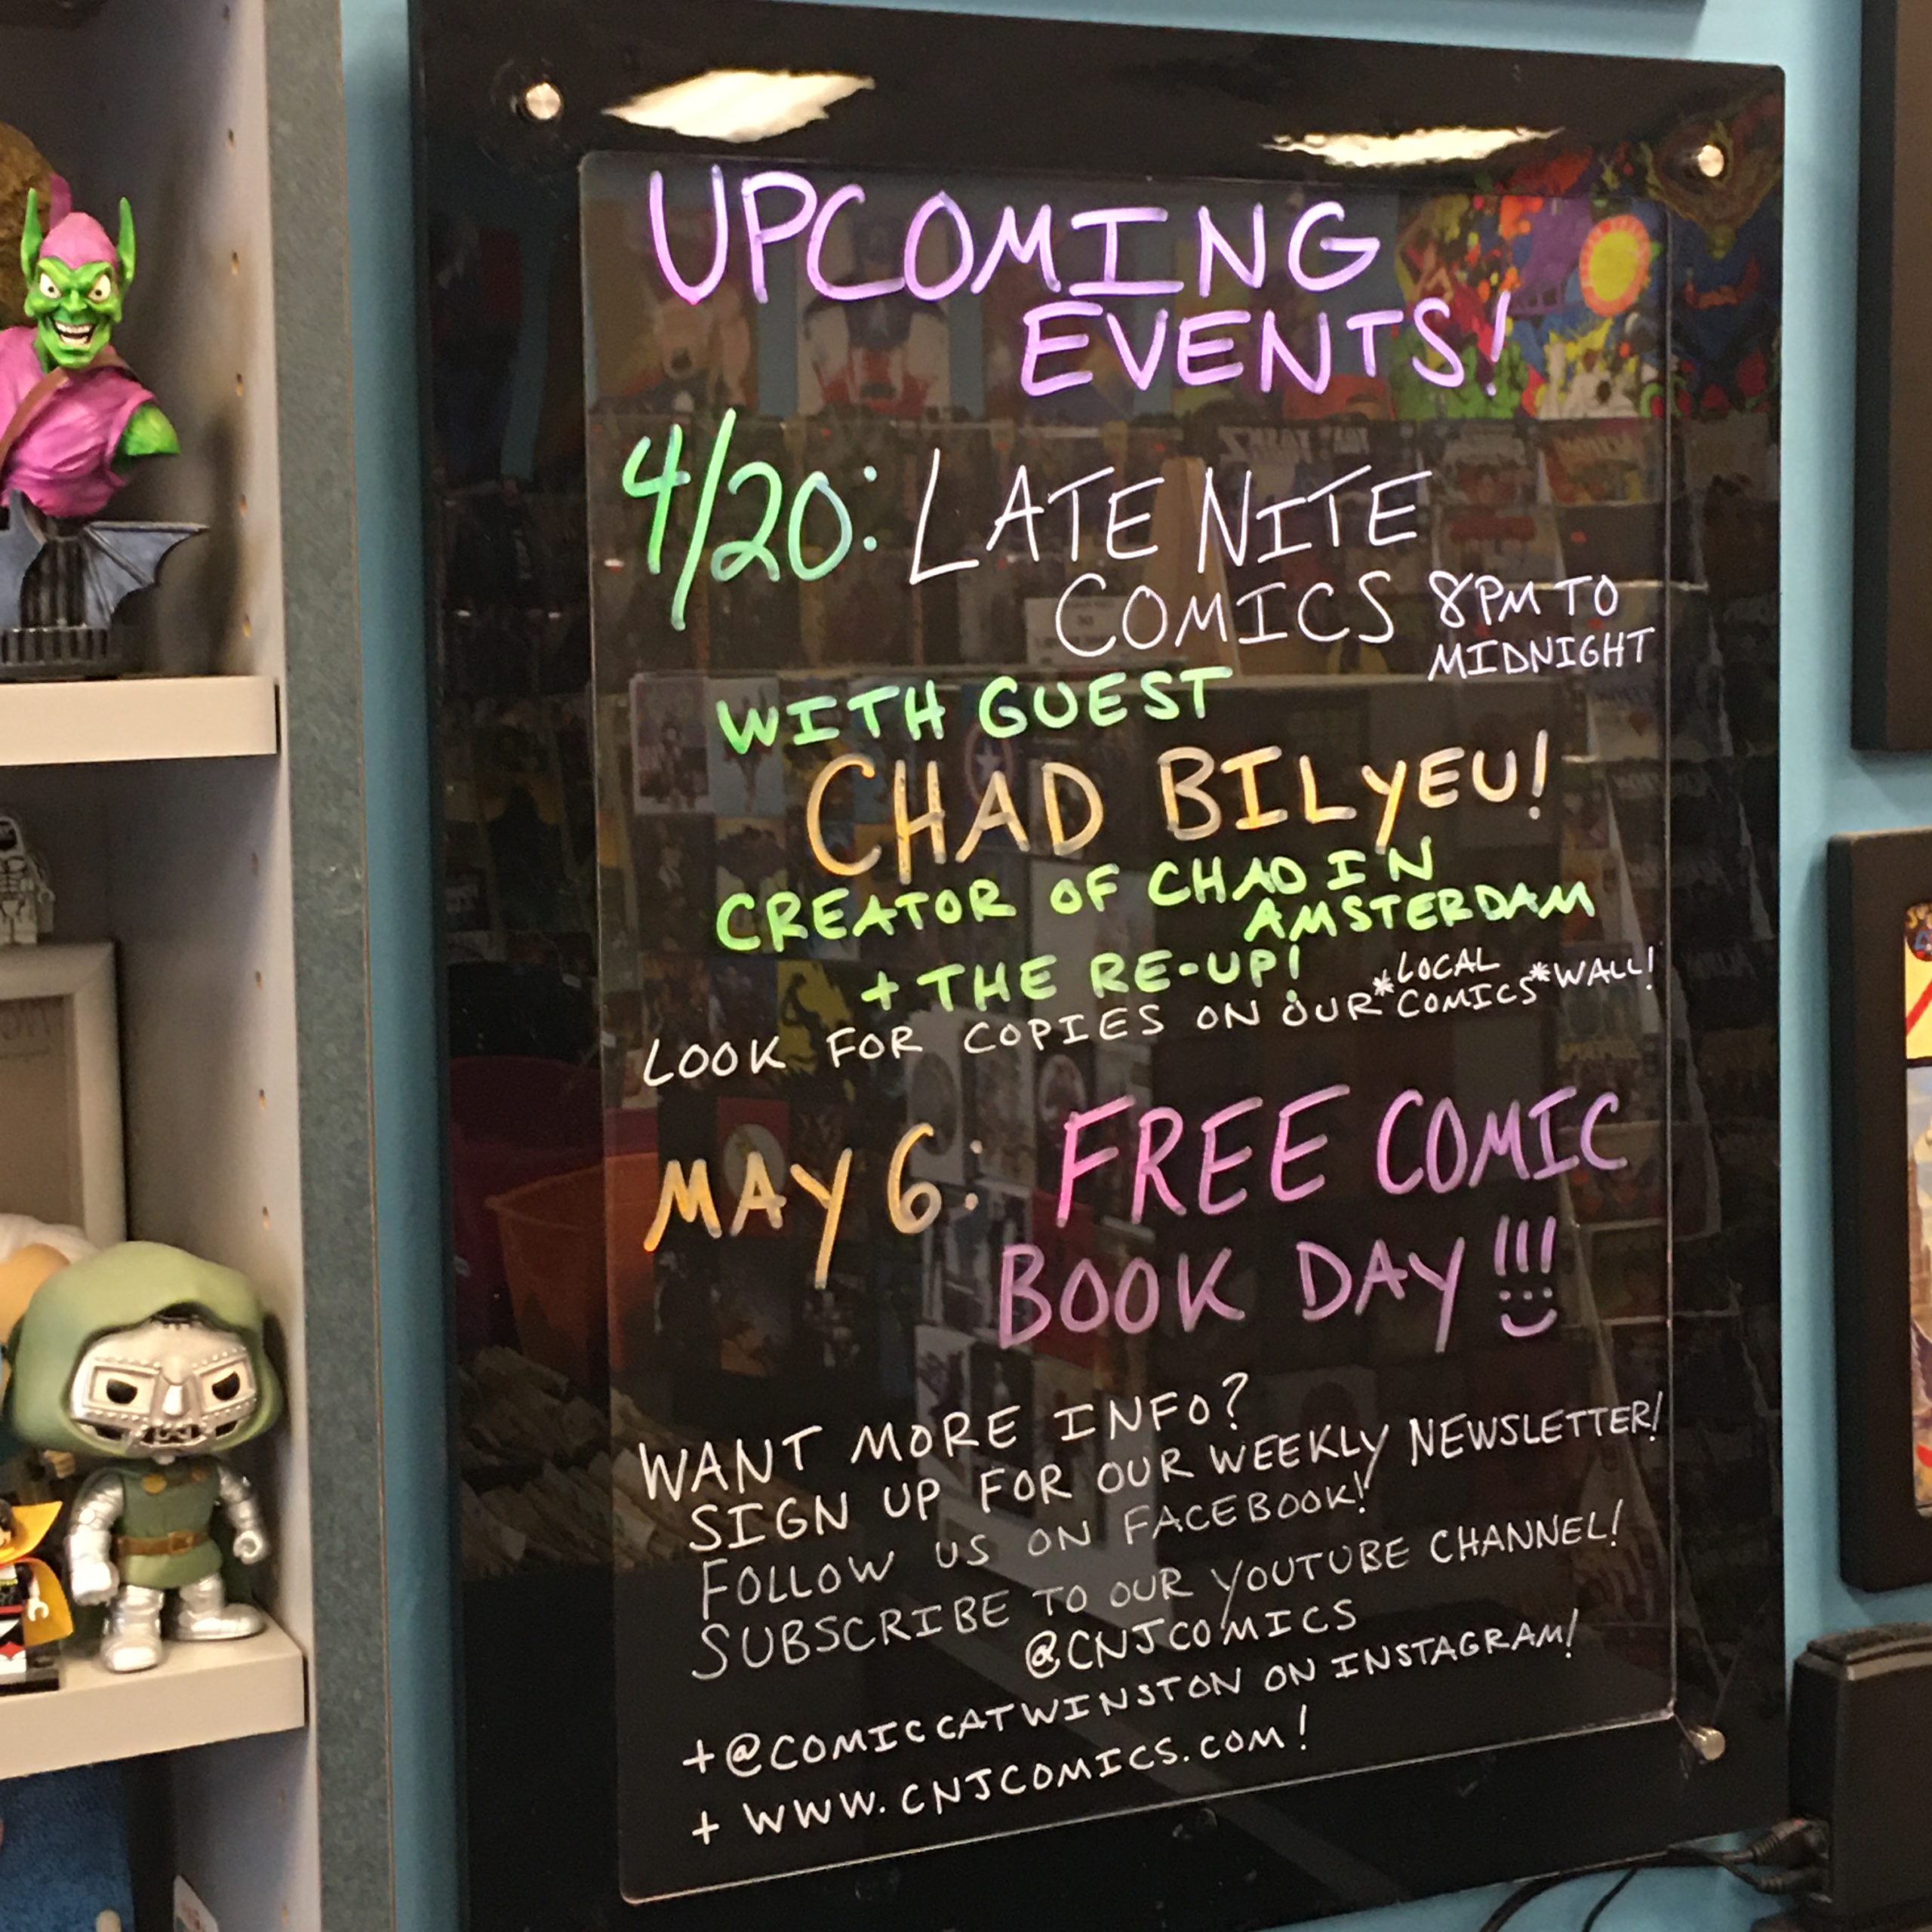 UPCOMING
EVENTS!
4/20: LATE NITE
COMICS 8PM TO
MIDNIGHT
WITH GUEST
CHAD BILYEU!
CREATOR OF CHAD IN
AMSTERDAM
+ THE RE-UP!
LOOK FOR COPIES ON OUR *LOCAL
COMICS* WALL!
MAY 6: FREE COMIC
BOOK DAY!!!
WANT MORE INFO?
SIGN UP FOR OUR WEEKLY NEWSLETTER!
FOLLOW US ON FACEBOOK!
SUBSCRIBE TO OUR YOUTUBE CHANNEL!
@CNJCOMICS
+ @COMICCATWINSTON ON INSTAGRAM!
+ WWW.CNJCOMICS.COM!